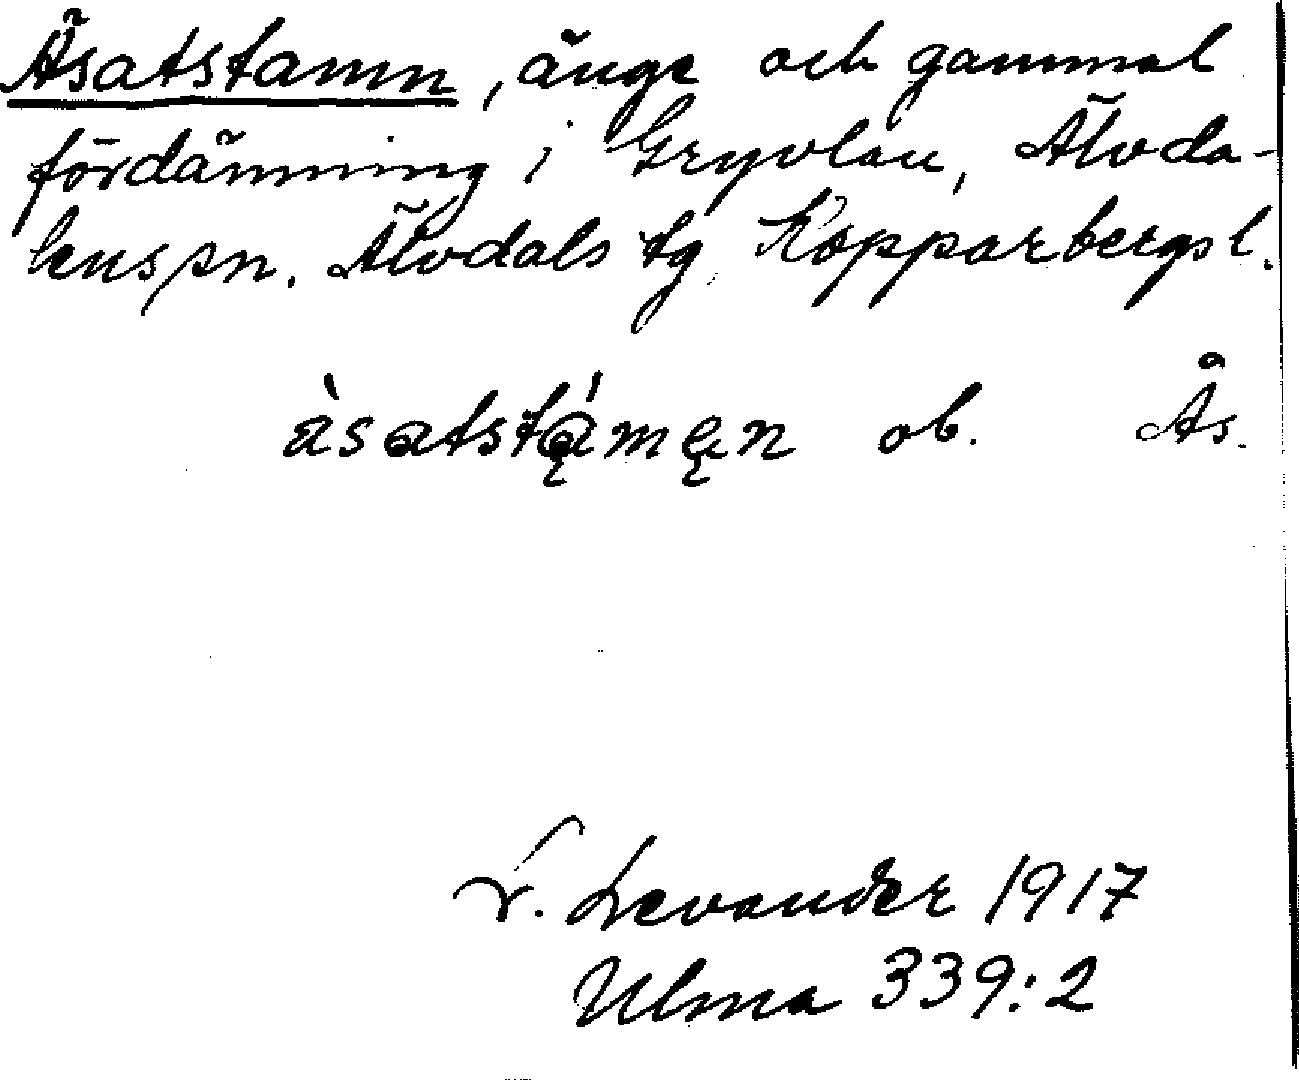 Äsatstamn, änge och gammal
fördämning i Gryvlan, Älvda-
lens sn. Älvdals tg, Kopparbergs l.
àsatstą́mąn ob. Ås.
L. Levander 1917
Ulma 339:2